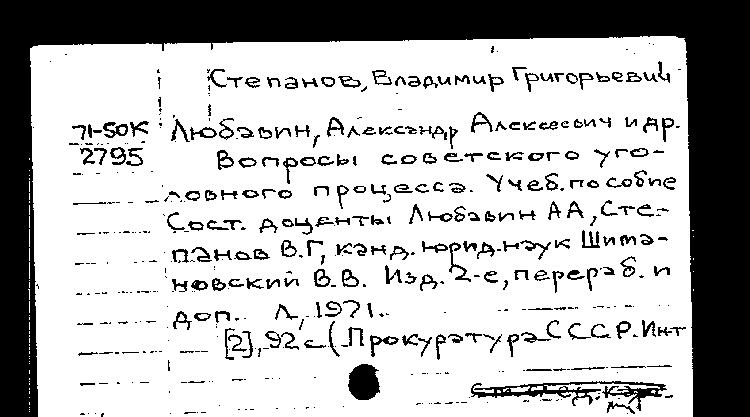 Степанов, Владимир Григорьевич
71-50К
2795
Любавин, Александр Алексеевич и др.
Вопросы советского уго-
ловного процесса. Учеб. пособие
Сост. доценты Любавин АА, Сте-
панов В.Г, канд. юрид. наук Шима-
новский В.В. Изд. 2-е, перераб. и
доп. Л, 1971.
[2], 92 с (Прокуратура СССР. Ин-т